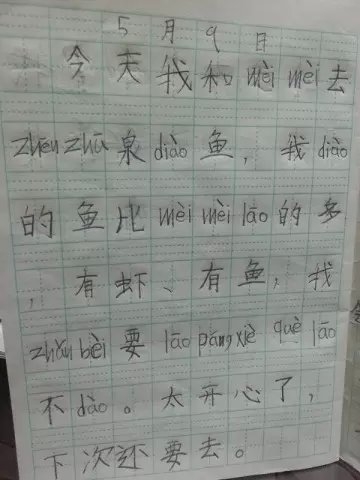 5月9日
今天我和mèi mèi去
zhēn zhū泉diào鱼，我diào
的鱼比mèi mèi lāo的多
，有虾、有鱼，我
zhǔn bèi要lāo páng xiè què lāo
不dào。太开心了，
下次还要去。